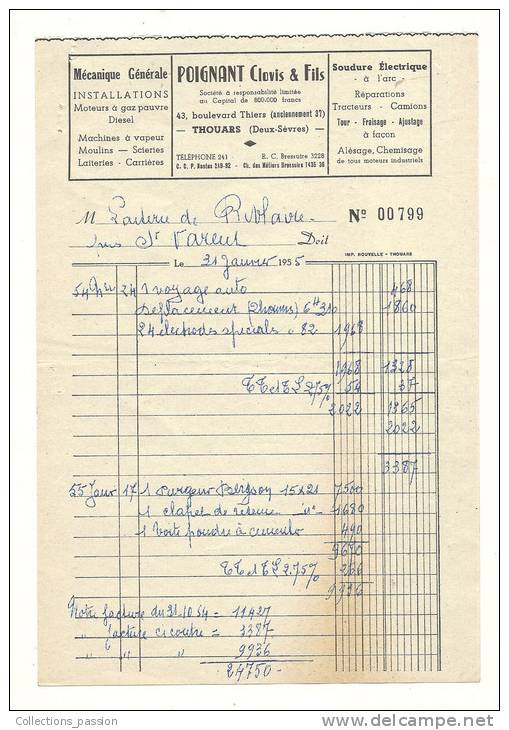 Mécanique Générale
INSTALLATIONS
Moteurs à gaz pauvre
Diesel
Machines à vapeur
Moulins — Scieries
Laiteries - Carrières
POIGNANT Clovis & Fils
Société à responsabilité limitée
au Capital de 800.000 francs
43, boulevard Thiers (anciennement 37)
— THOUARS (Deux-Sèvres) —
TÉLÉPHONE 241 R. C. Bressuire 3228
C. C. P. Nantes 219-92 - Ch. des Métiers Bressuire 1435 36
Soudure Électrique
- à l'arc -
Réparations
Tracteurs - Camions
Tour - Fraisage - Ajustage
à façon
Alésage, Chemisage
de tous moteurs industriels
M Laiterie de Riblaire
Nº 00799
St Varent Doit
IMP. NOUVELLE - THOUARS
Le 31 Janvier 1955
54 24 1 voyage auto 468
Déplacement (2 hommes) 6H 310 1860
24 électrodes spéciales à 82 1968
1968 1328
TT et TL 2.75% 54 37
2022 1365
2022
3387
55 Janv 17 1 purgeur 15x21 7500
1 clapet de retenue 1680
1 boite poudre à cementer 490
9670
TT et TL 2.75% 266
9936
Notre facture du 31.10.54 = 11427
" facture ci contre = 3387
" " " 9936
24750
Collections_passion
http://www.delcampe.net